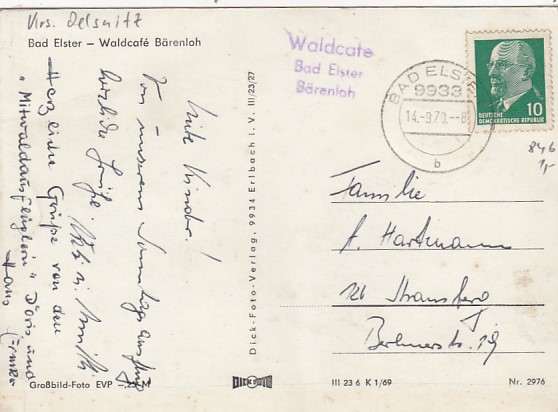 Krs. Oelsnitz
Bad Elster – Waldcafé Bärenloh
Waldcafe
Bad Elster
Bärenloh
BAD ELSTER
9933
14.-9.70.-8
b
DEUTSCHE
DEMOKRATISCHE REPUBLIK
10
846
1,-
Liebe Kinder!
Von unserem Sonntagsausflug
herzliche Grüße.
Herzliche Grüße von den
"Mitwaldausflüglern" Doris und
Hans
Familie
A. Hartmann
126 Strausberg
Berlinerstr. 19
Dick-Foto-Verlag, 9934 Erlbach i. V. III/23/27
Großbild-Foto EVP –,25 M
DICK FOTO
III 23 6 K 1/69
Nr. 2976